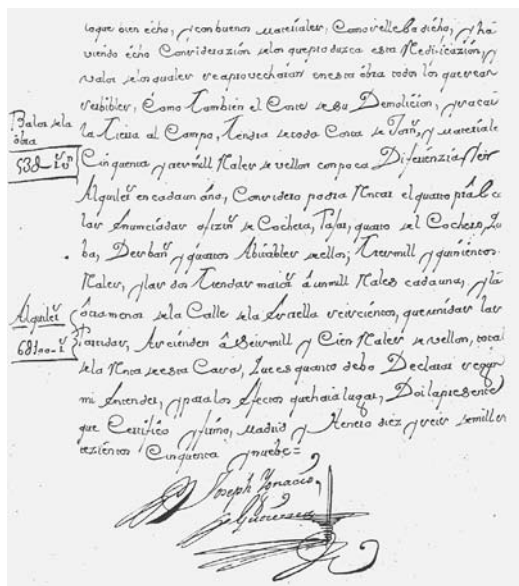 toque bien echo, y con buenos materiales, Como relleba dicho, y ha
viendo echo Considerazión de los que produzca esta Redificazión, y
valor de los quales se aprovecharán en esta óbra todos los que sean
servibles, Como Tambien el Coste de su Demolición, y sacar
la Tierra al Campo, Tendra de toda Costa de Materiale
Balor de la
óbra
Cinquenta y tres mill Reales de vellon compoca Diferenzia,
Alquiler en cada un áno, Considero podra Rentar el quarto pral.
las Anunciadas ofizin.s de Cochera, Pajar, quarto del Cochero,
ba, Desban y quartos Abitables de ellos; Tres mill y quinientos
Reales, y las dos Tiendas a un mill Reales cada una, y la
Alquiler
ótra menor de la Calle de la seiscientos, que unidas las
Partidas, Ascienden â Seis mill y Cien Reales de vellon, total
de la Renta de esta Casa, Lo es quanto debo Declarar segun
mi Entender, y para los Efectos que haia lugar, Doi la presente
que Certifico y firmo, Madrid y Henero diez y seis de mill se
tezientos Cinquenta y nuebe=
Joseph Ygnacio